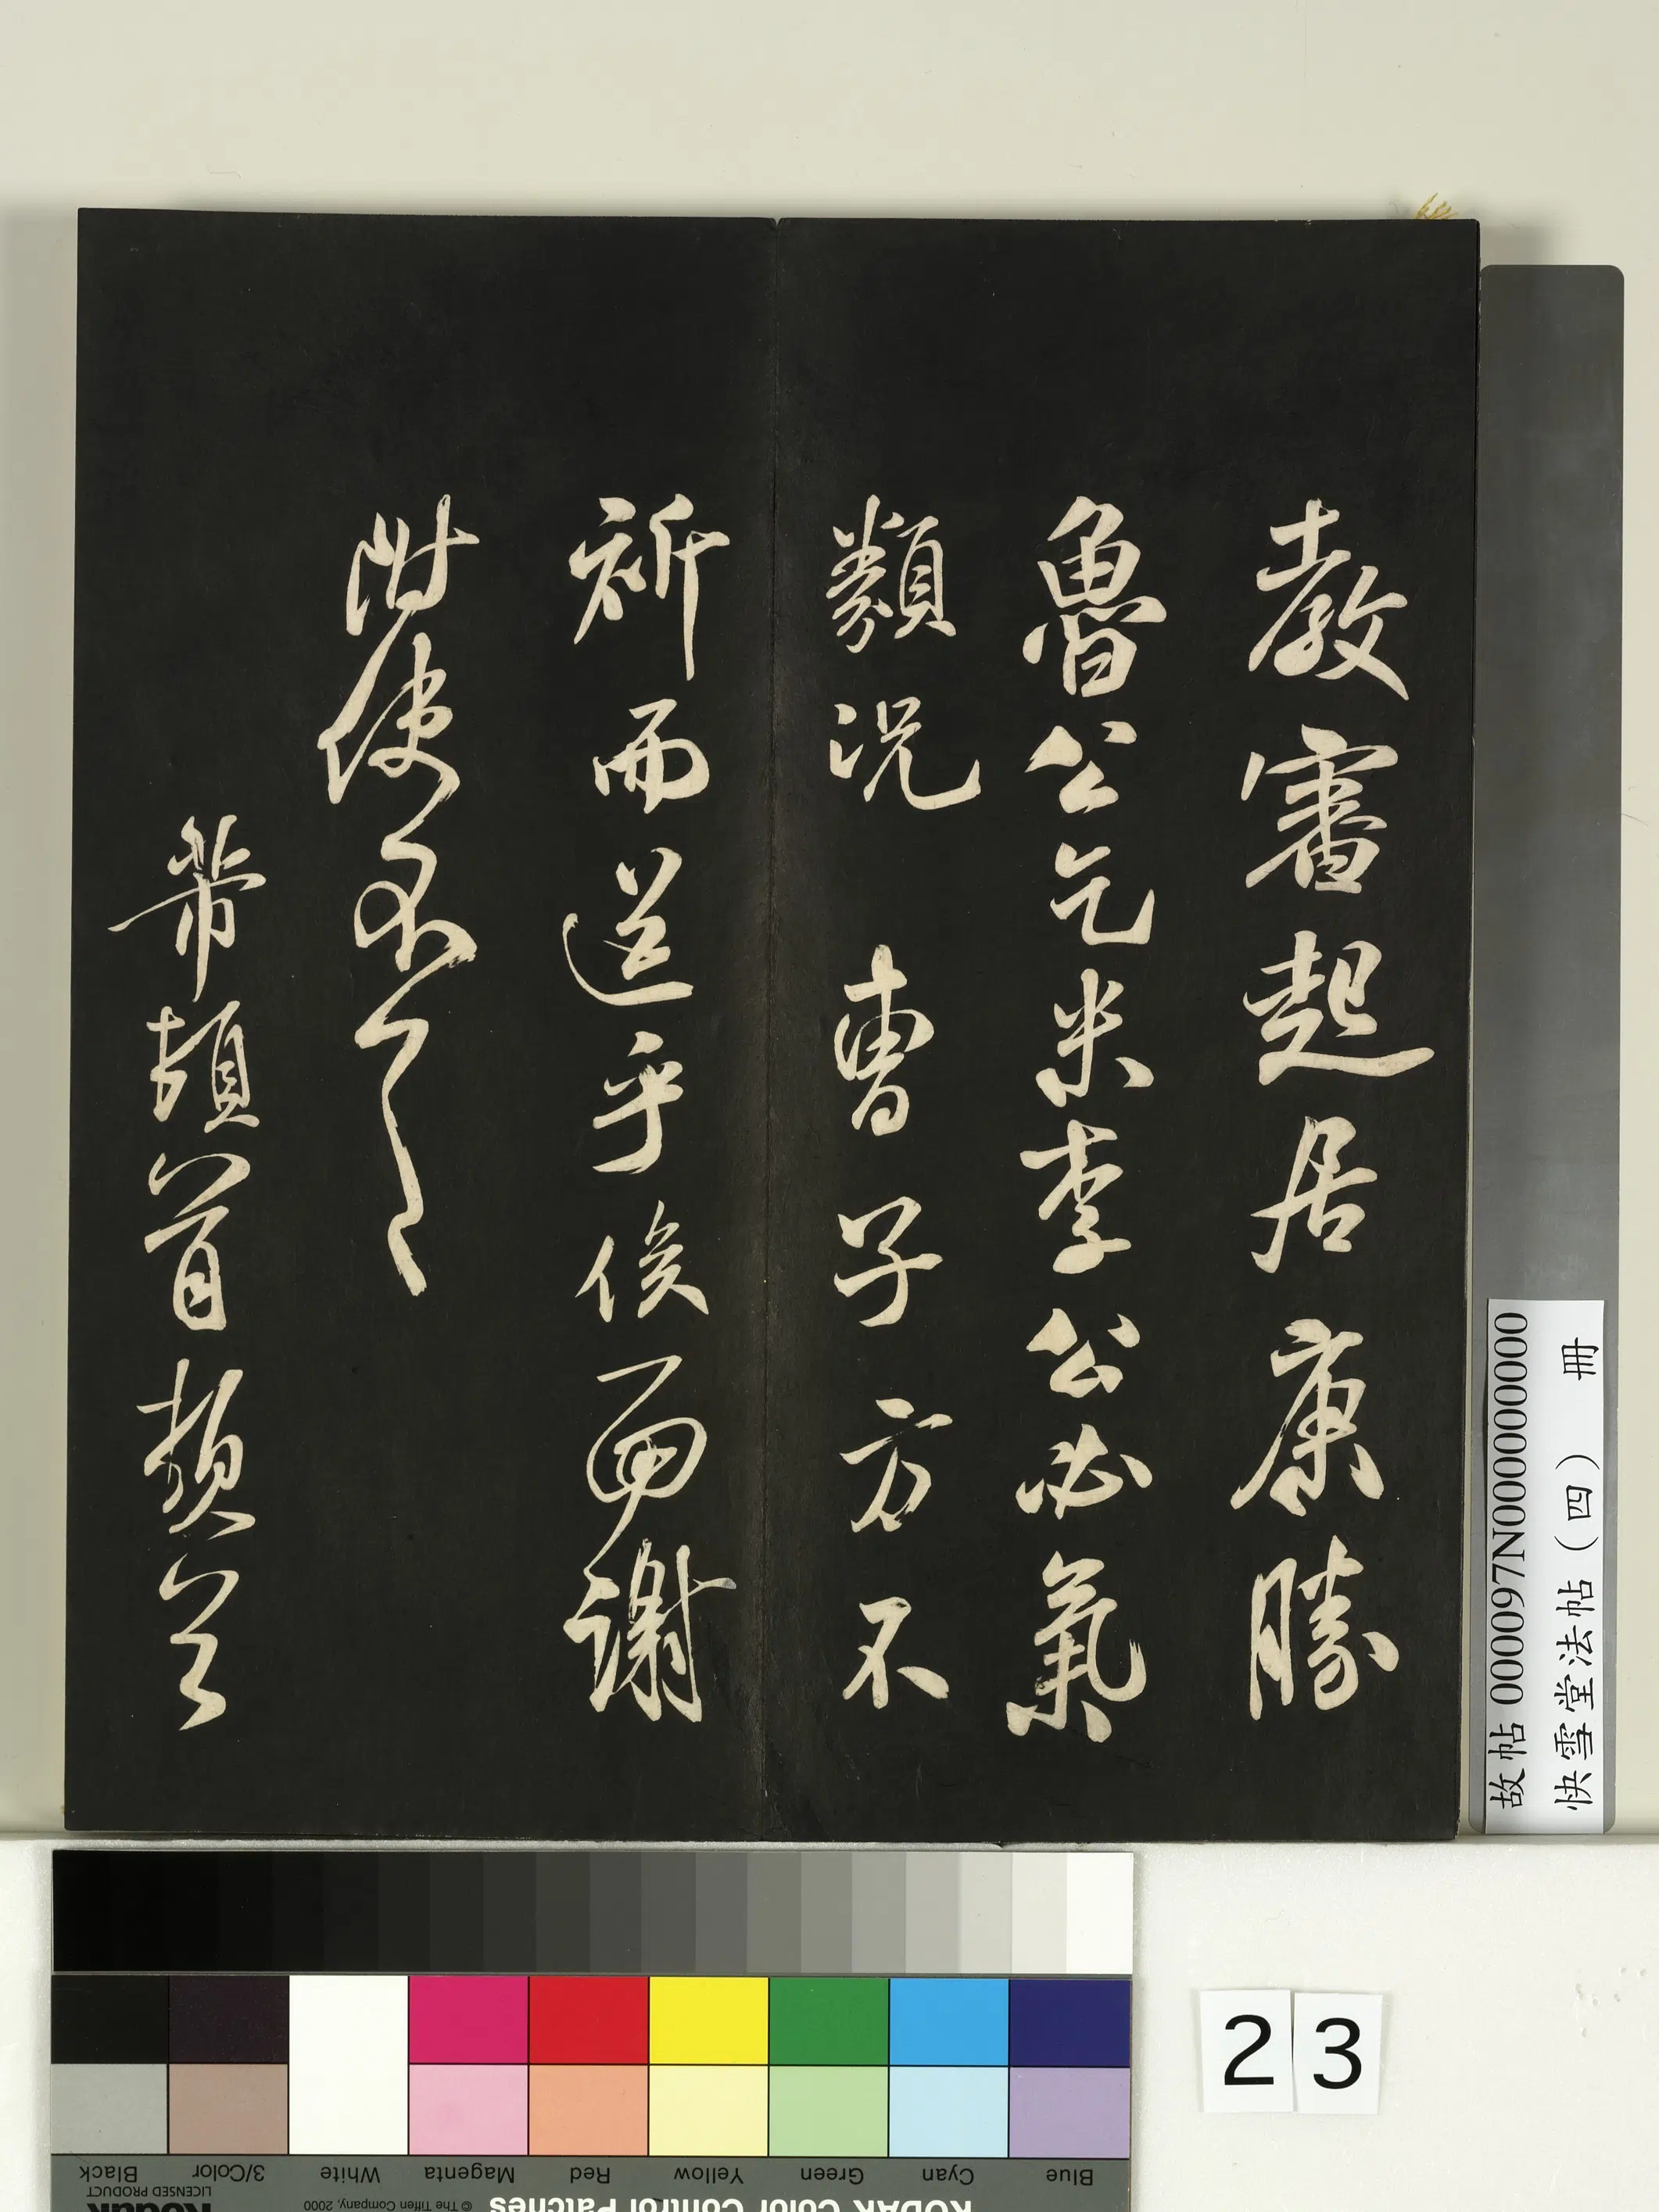 教審起居康勝
魯公乞米李公必氣
類況 曹子方不
祈而送乎俟面謝
附使不
芾頓首頓首
故帖 000097N000000000
快雪堂法帖(四) 冊
23
Blue
Cyan
Green
Yellow
Red
Magenta
White
3/Color
Black
KODAK Color Control Patches
© The Tiffen Company, 2000
Kodak
LICENSED PRODUCT